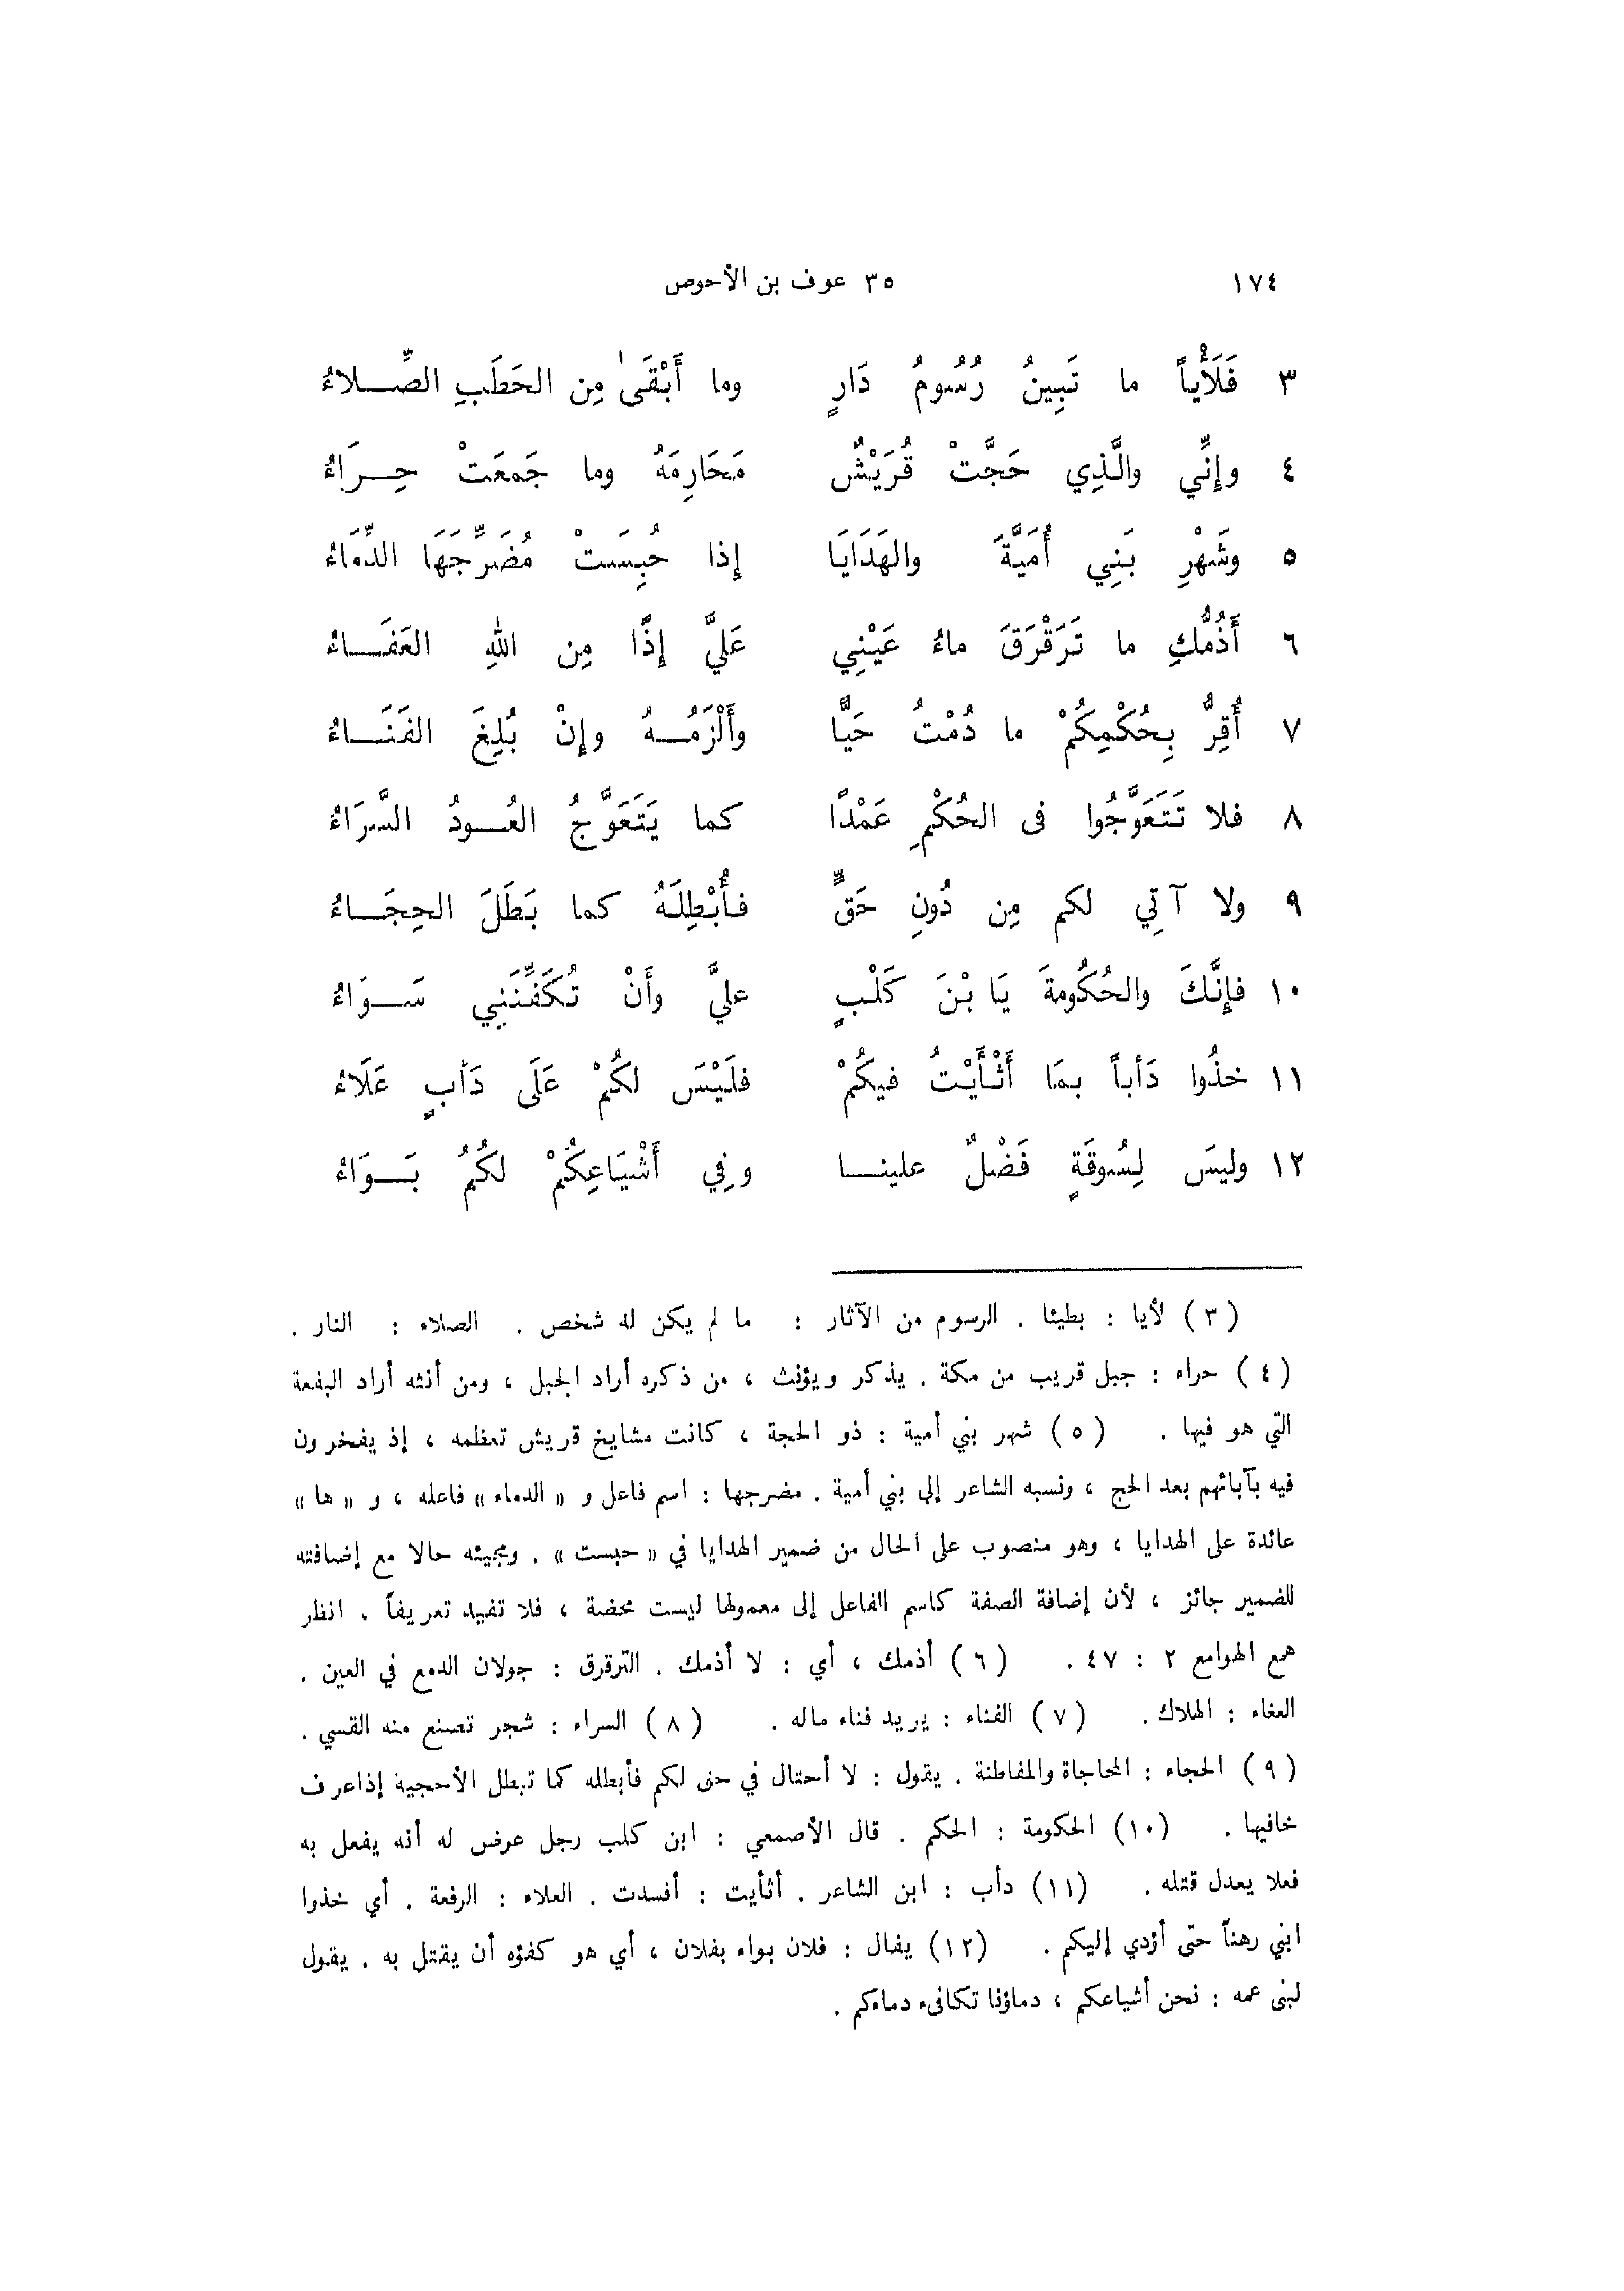 ١٧٤ ٣٥ عوف بن الأحوص
٣ فَلَأْياً ما تَبِينُ رُسُومُ دَارٍ وما أَبْقَىٰ مِن الحَطَبِ الصِّلاءُ
٤ وإِنِّي والَّذِي حَجَّتْ قُرَيْشٌ مَحَارِمَهُ وما جَمعَتْ حِرَاءُ
٥ وشَهْرِ بَنِي أُمَيَّةَ والهَدَايَا إِذا حُبِسَتْ مُضَرِّجَهَا الدِّمَاءُ
٦ أَذُمُّكِ ما تَرَقْرَقَ ماءُ عَيْنِي عَلَيَّ إِذًا مِن اللهِ العَفَاءُ
٧ أُقِرُّ بِحُكْمِكُمْ ما دُمْتُ حَيًّا وأَلْزَمُهُ وإِنْ بُلِغَ الفَنَاءُ
٨ فلا تَتَعَوَّجُوا فى الحُكْمِ عَمْدًا كما يَتَعَوَّجُ العُودُ السَّرَاءُ
٩ ولا آتِي لكم مِن دُونِ حَقٍّ فأُبْطِلَهُ كما بَطَلَ الحِجَاءُ
١٠ فإِنَّكَ والحُكُومةَ يَا بْنَ كَلْبٍ عليَّ وأَنْ تُكَفِّنَنِي سَوَاءُ
١١ خذُوا دَأباً بمَا أَثْأَيْتُ فيكُمْ فلَيْسَ لكُمْ عَلَى دَأبٍ عَلَاءُ
١٢ وليسَ لِسُوقَةٍ فَضْلٌ علينا وفِي أَشْيَاعِكُمْ لكُمُ بَوَاءُ
(٣) لأيا : بطيئا . الرسوم من الآثار : ما لم يكن له شخص . الصلاء : النار .
(٤) حراء : جبل قريب من مكة . يذكر ويؤنث ، من ذكره أراد الجبل ، ومن أنثه أراد البقعة
التي هو فيها . (٥) شهر بني أمية : ذو الحجة ، كانت مشايخ قريش تعظمه ، إذ يفخرون
فيه بآبائهم بعد الحج ، ونسبه الشاعر إلى بني أمية . مضرجها : اسم فاعل و « الدماء » فاعله ، و « ها »
عائدة على الهدايا ، وهو منصوب على الحال من ضمير الهدايا في « حبست » . ومجيئه حالا مع إضافته
للضمير جائز ، لأن إضافة الصفة كاسم الفاعل إلى معمولها ليست محضة ، فلا تفيد تعريفاً . انظر
همع الهوامع ٢ : ٤٧ . (٦) أذمك ، أي : لا أذمك . الترقرق : جولان الدمع في العين .
العفاء : الهلاك . (٧) الفناء : يريد فناء ماله . (٨) السراء : شجر تصنع منه القسي .
(٩) الحجاء : المحاجاة والمفاطنة . يقول : لا أحتال في حق لكم فأبطله كما تبطل الأحجية إذا عرف
خافيها . (١٠) الحكومة : الحكم . قال الأصمعي : ابن كلب رجل عرض له أنه يفعل به
فعلا يعدل قتله . (١١) دأب : ابن الشاعر . أثأيت : أفسدت . العلاء : الرفعة . أي خذوا
ابني رهناً حتى أؤدي إليكم . (١٢) يقال : فلان بواء بفلان ، أي هو كفؤه أن يقتل به . يقول
لبنى عمه : نحن أشياعكم ، دماؤنا تكافىء دماءكم .